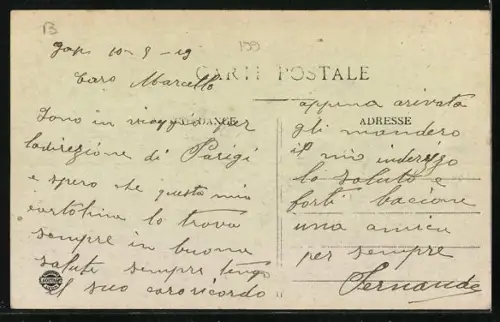 B
199
10-9-19
Caro Marcello
CARTE POSTALE
Sono in viaggio per
DANCE
ladirezione di Parigi
e spero che questa mia
cartolina lo trova
sempre in buona
salute sempre tengo
il suo caro ricordo
appena arivata
ADRESSE
gli mandero
il mio inderizzo
lo saluto e
forti bacione
una amica
per sempre
Fernande